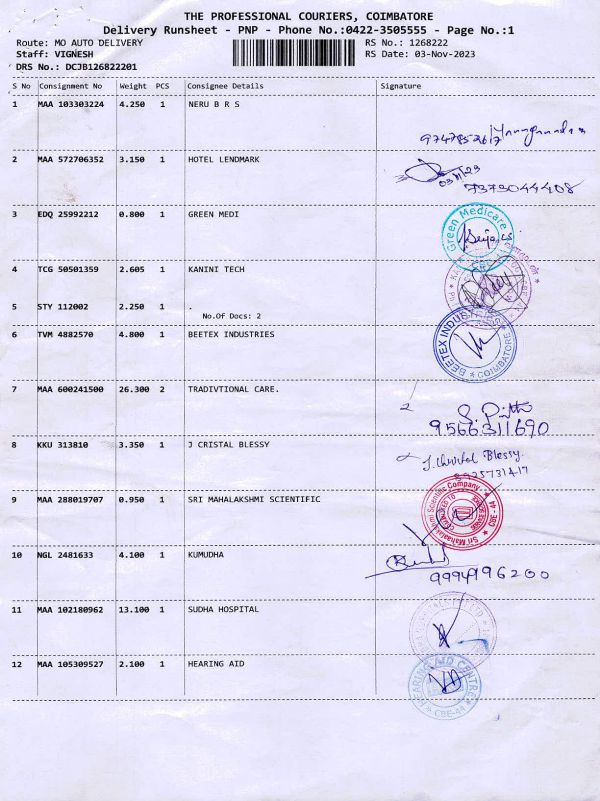 THE PROFESSIONAL COURIERS, COIMBATORE
Delivery Runsheet - PNP - Phone No.:0422-3505555 - Page No.:1
Route: MO AUTO DELIVERY RS No.: 1268222
Staff: VIGNESH RS Date: 03-Nov-2023
DRS No.: DCJB126822201
S No Consignment No Weight PCS Consignee Details Signature
1 MAA 103303224 4.250 1 NERU B R S
9747852617
2 MAA 572706352 3.150 1 HOTEL LENDMARK
03/11/23
7373044408
3 EDQ 25992212 0.800 1 GREEN MEDI
Green Medicare
4 TCG 50501359 2.605 1 KANINI TECH
5 STY 112002 2.250 1 .
No.Of Docs: 2
6 TVM 4882570 4.800 1 BEETEX INDUSTRIES
BEETEX INDUSTRIES * COIMBATORE *
7 MAA 600241500 26.300 2 TRADIVTIONAL CARE.
2
9566311690
8 KKU 313810 3.350 1 J CRISTAL BLESSY
J. Christol Blessy.
9 MAA 288019707 0.950 1 SRI MAHALAKSHMI SCIENTIFIC
Sri Mahalakshmi Scientific Company * CBE - 44 *
10 NGL 2481633 4.100 1 KUMUDHA
9994996200
11 MAA 102180962 13.100 1 SUDHA HOSPITAL
12 MAA 105309527 2.100 1 HEARING AID
HEARING AID CENTRE * CBE-44 *